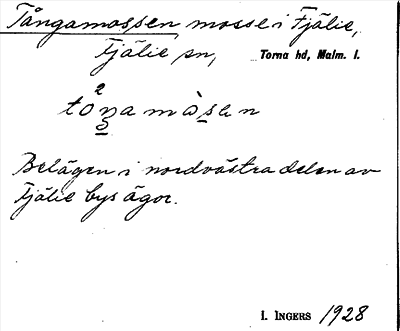 Tångamossen mosse i Fjälie,
Fjälie sn, Torna hd, Malm. l.
Belägen i nordvästra delen av
Fjälie bys ägor.
I. INGERS 1928